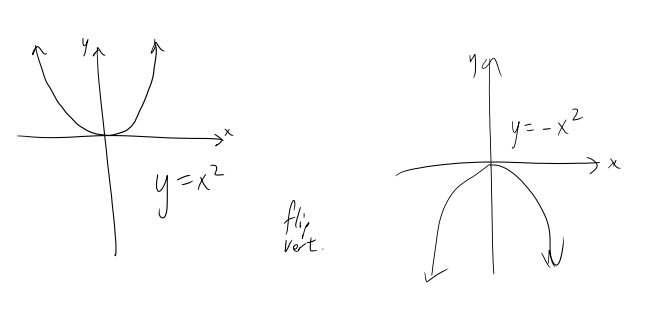 y
x
y = x²
flip
vert.
y
y = -x²
x